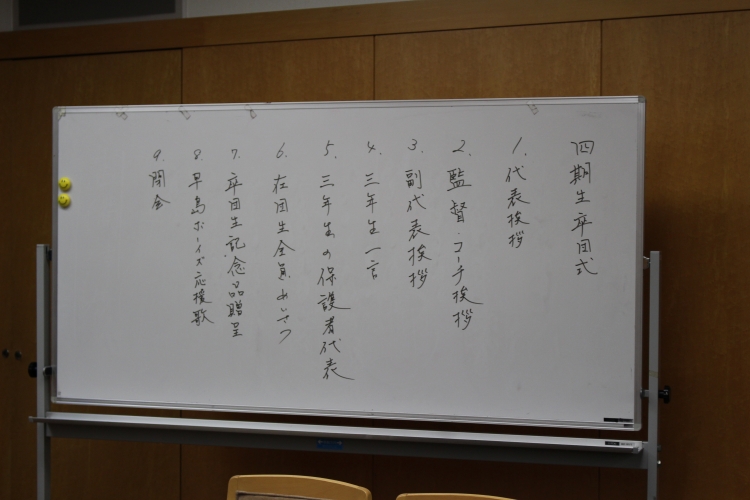 四期生卒団式
1. 代表挨拶
2. 監督・コーチ挨拶
3. 副代表挨拶
4. 三年生一言
5. 三年生の保護者代表
6. 在団生全員あいさつ
7. 卒団生記念品贈呈
8. 早島ボーイズ応援歌
9. 閉会